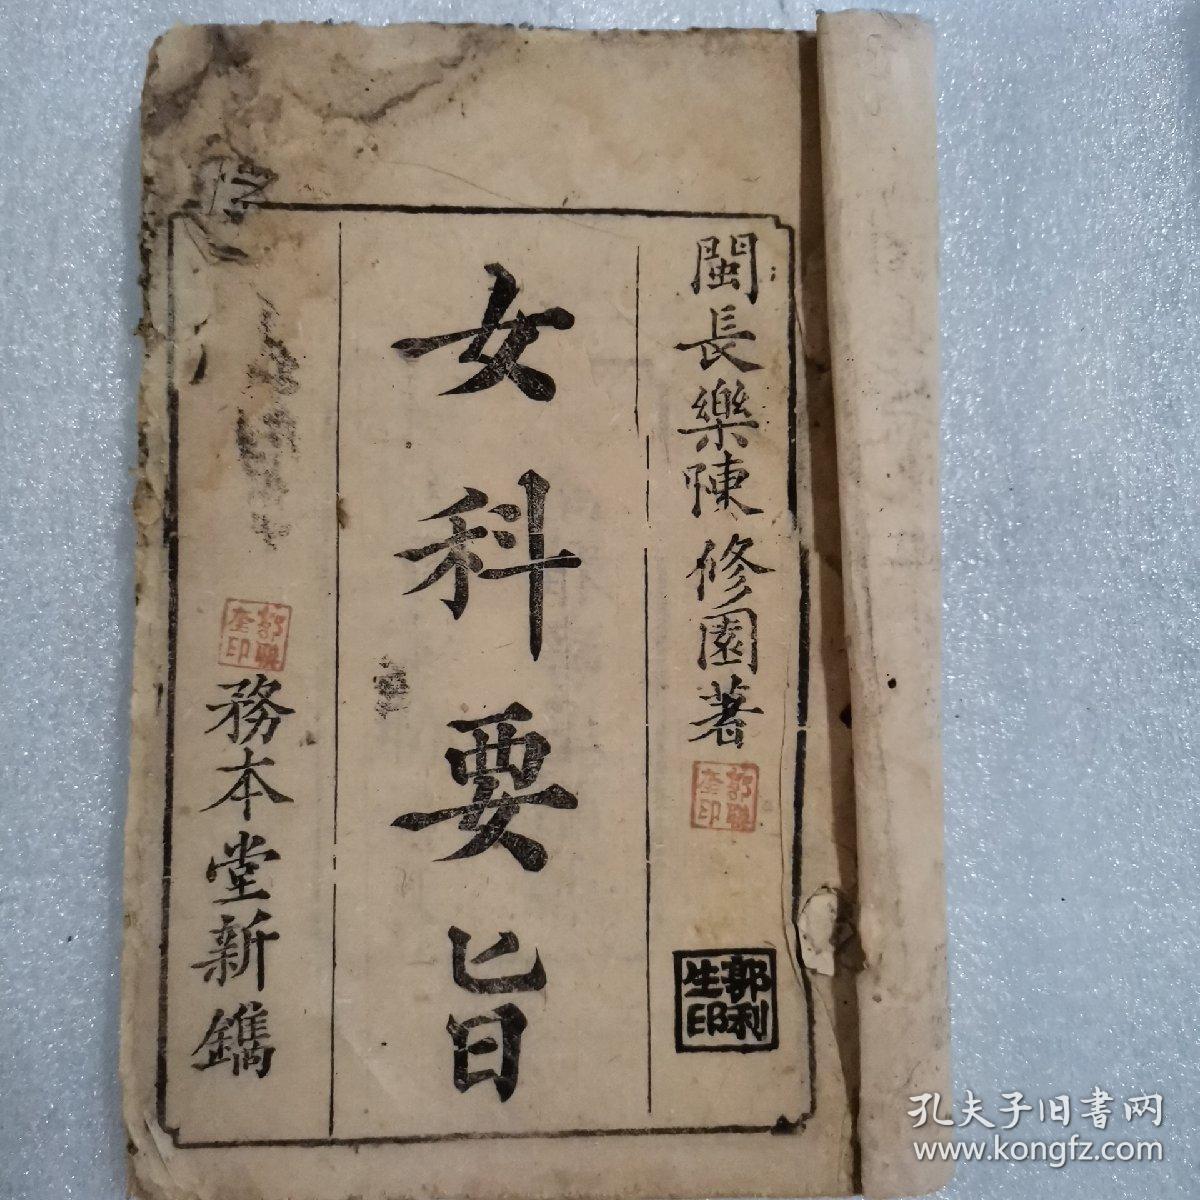 閩長樂陳修園著
郭聯奎印
郭利生印
女科要旨
郭聯奎印
務本堂新鐫
孔夫子旧書网
www.kongfz.com